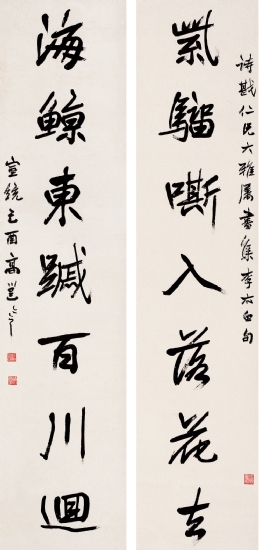 詩戡仁兄大雅属書集李太白句
紫騮嘶入落花去
海鯨東䠞百川迴
宣統己酉高邕之